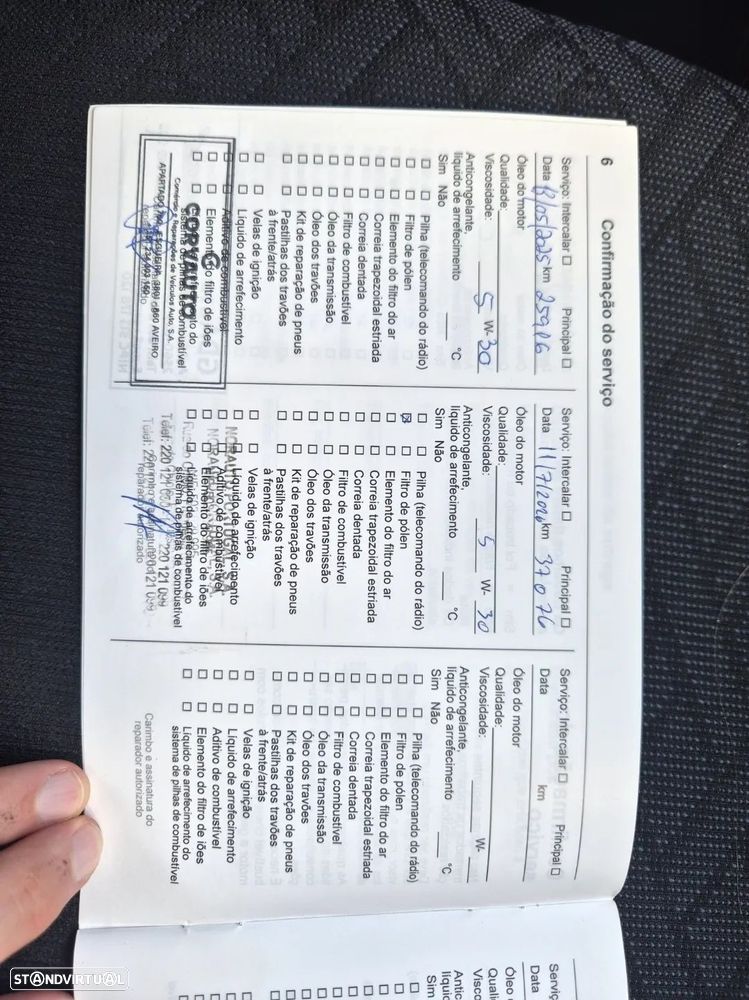 6 Confirmação do serviço
Serviço: Intercalar ☐ Principal ☐
Data 13/05/2025 km 25916
Óleo do motor
Qualidade:
Viscosidade: 5 W- 30
Anticongelante,
líquido de arrefecimento °C
Sim Não
☐ ☐ Pilha (telecomando do rádio)
☐ ☐ Filtro de pólen
☐ ☐ Elemento do filtro do ar
☐ ☐ Correia trapezoidal estriada
☐ ☐ Correia dentada
☐ ☐ Filtro de combustível
☐ ☐ Óleo da transmissão
☐ ☐ Óleo dos travões
☐ ☐ Kit de reparação de pneus
☐ ☐ Pastilhas dos travões
à frente/atrás
☐ ☐ Velas de ignição
☐ ☐ Líquido de arrefecimento
☐ ☐ Aditivo de combustível
☐ ☐ Elemento do filtro de iões
sistema de pilhas de combustível
CORVAUTO
Comércio e Reparações de Veículos Auto, S.A.
AVEIRO
Serviço: Intercalar ☐ Principal ☐
Data 11/7/2026 km 37076
Óleo do motor
Qualidade:
Viscosidade: 5 W- 30
Anticongelante,
líquido de arrefecimento °C
Sim Não
☐ ☐ Pilha (telecomando do rádio)
☒ ☐ Filtro de pólen
☐ ☐ Elemento do filtro do ar
☐ ☐ Correia trapezoidal estriada
☐ ☐ Correia dentada
☐ ☐ Filtro de combustível
☐ ☐ Óleo da transmissão
☐ ☐ Óleo dos travões
☐ ☐ Kit de reparação de pneus
☐ ☐ Pastilhas dos travões
à frente/atrás
☐ ☐ Velas de ignição
☐ ☐ Líquido de arrefecimento
☐ ☐ Aditivo de combustível
☐ ☐ Elemento do filtro de iões
☐ ☐ Líquido de arrefecimento do
sistema de pilhas de combustível
Serviço: Intercalar ☐ Principal ☐
Data km
Óleo do motor
Qualidade:
Viscosidade: W-
Anticongelante,
líquido de arrefecimento °C
Sim Não
☐ ☐ Pilha (telecomando do rádio)
☐ ☐ Filtro de pólen
☐ ☐ Elemento do filtro do ar
☐ ☐ Correia trapezoidal estriada
☐ ☐ Correia dentada
☐ ☐ Filtro de combustível
☐ ☐ Óleo da transmissão
☐ ☐ Óleo dos travões
☐ ☐ Kit de reparação de pneus
☐ ☐ Pastilhas dos travões
à frente/atrás
☐ ☐ Velas de ignição
☐ ☐ Líquido de arrefecimento
☐ ☐ Aditivo de combustível
☐ ☐ Elemento do filtro de iões
☐ ☐ Líquido de arrefecimento do
sistema de pilhas de combustível
Carimbo e assinatura do
reparador autorizado
STANDVIRTUAL